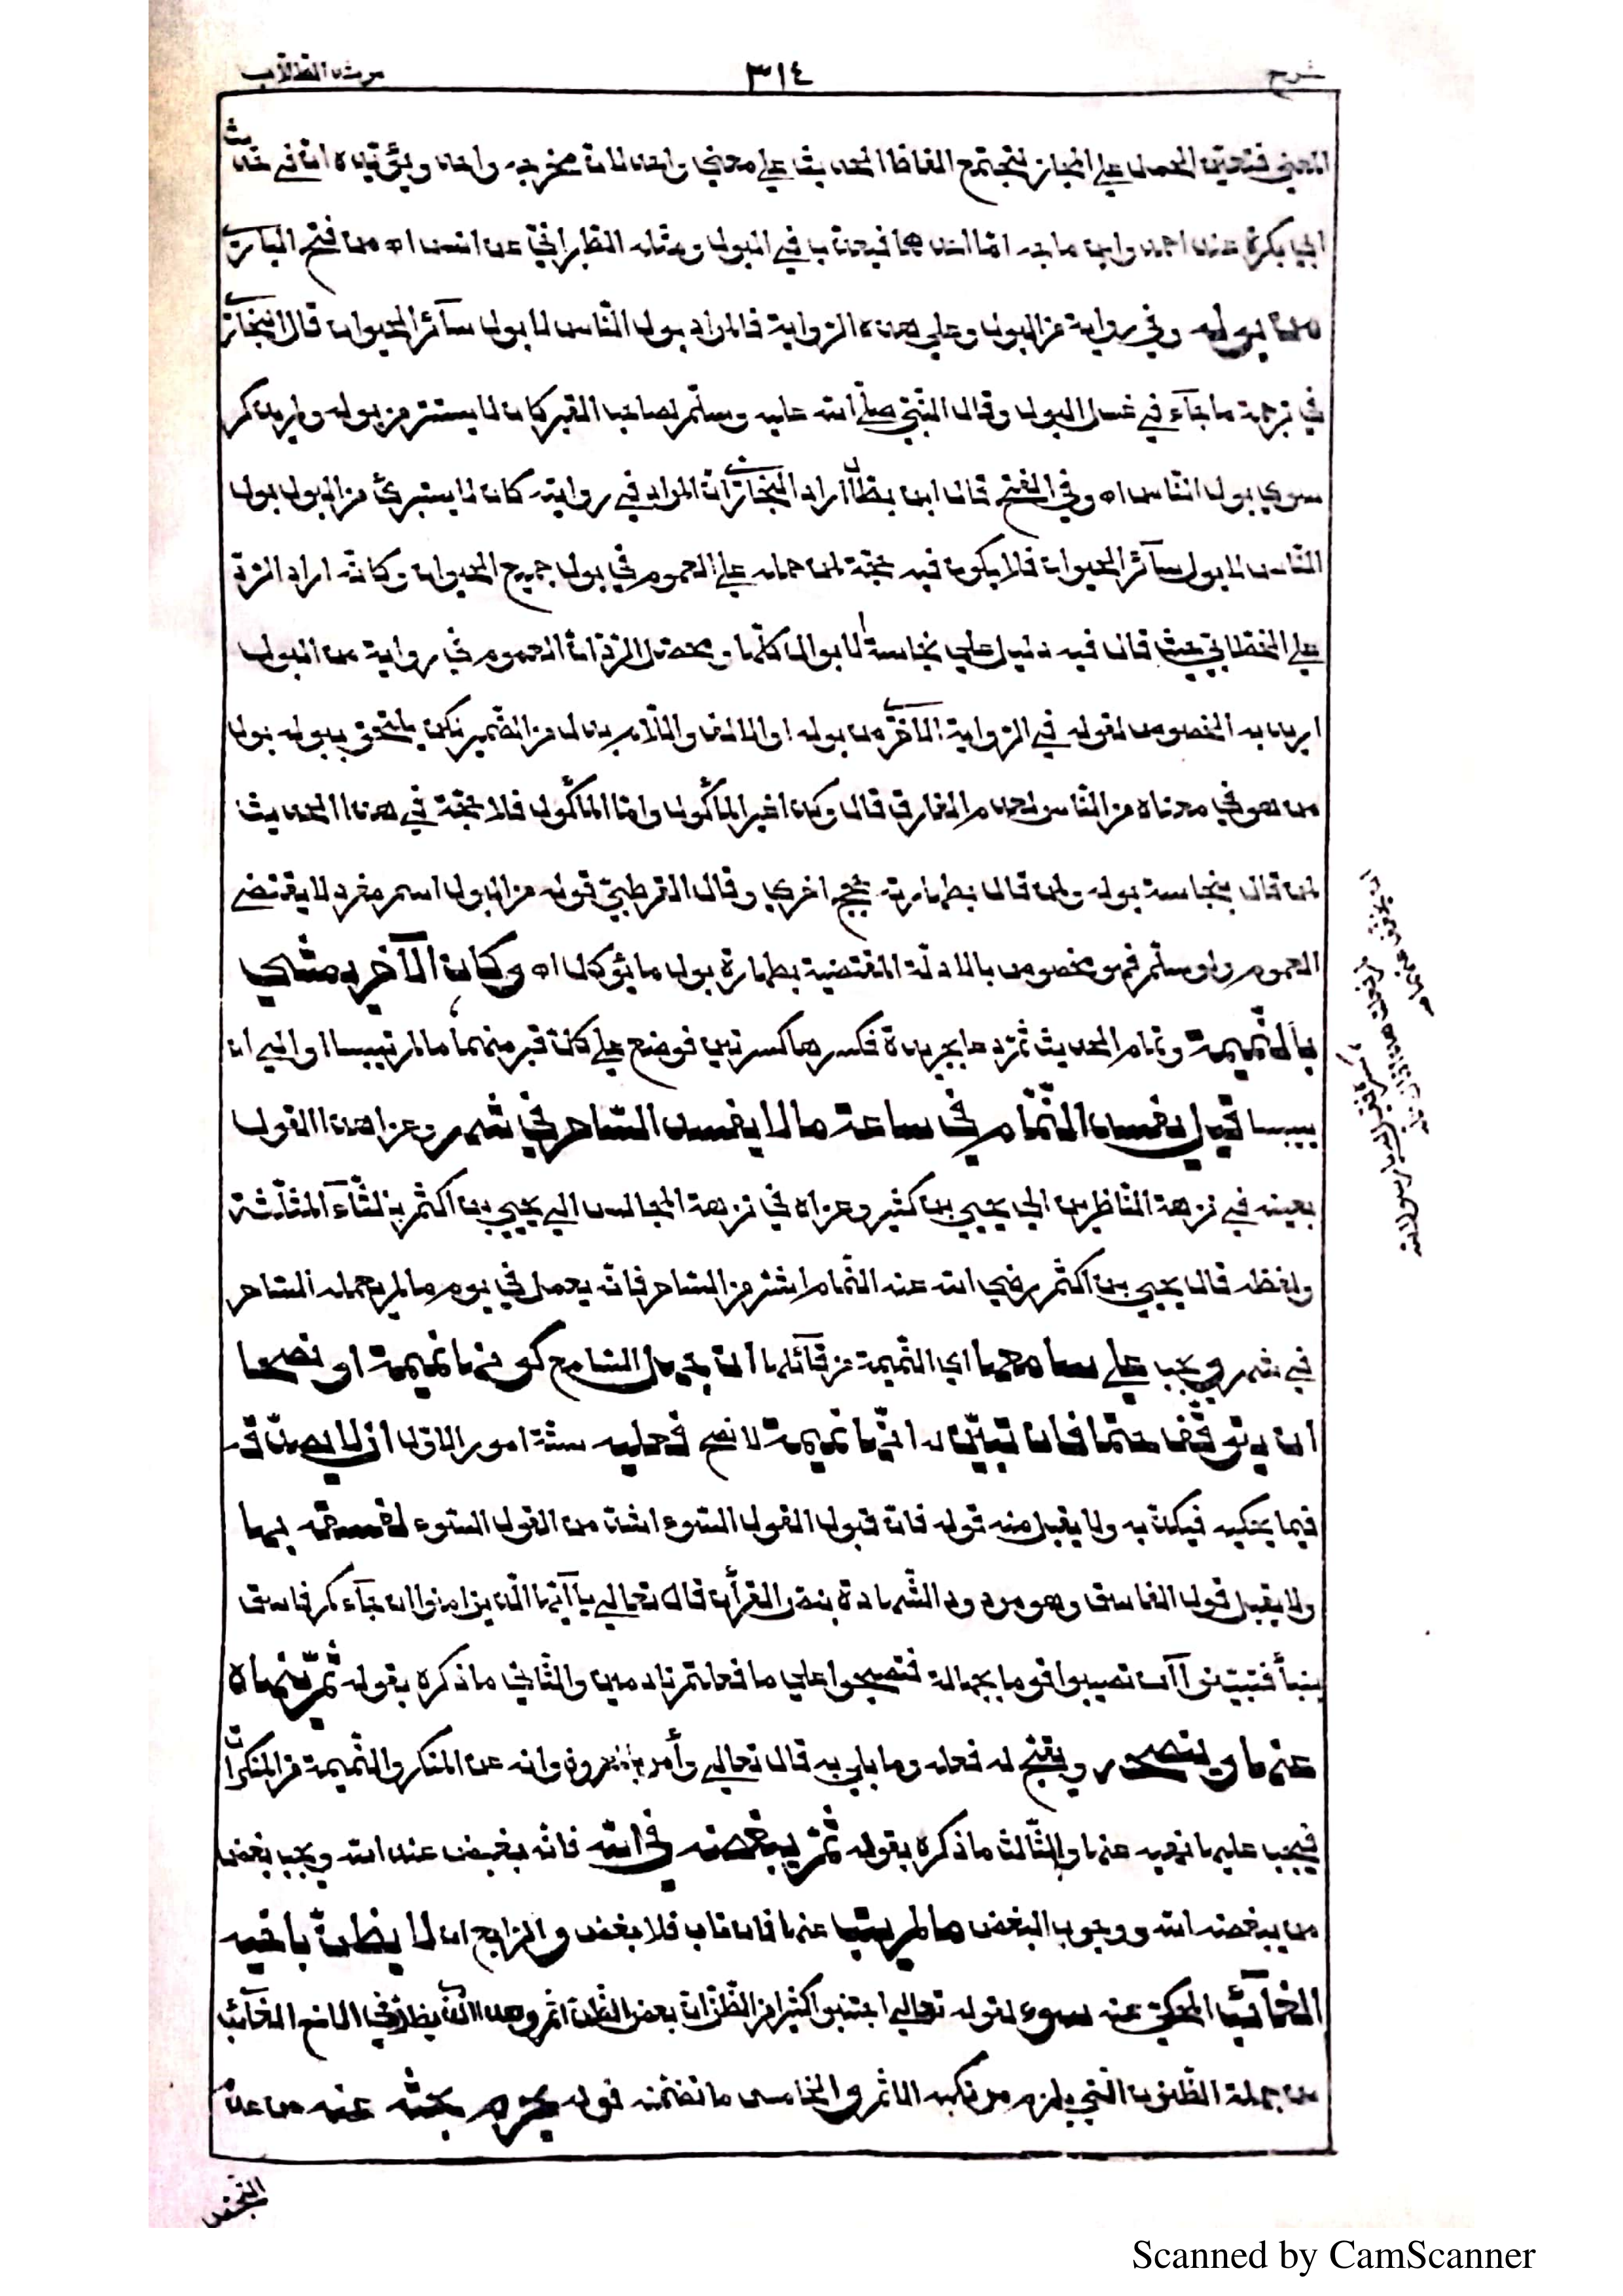 شرح ٣١٤ مرشد الطلاب
المعنى فتعين الحمل على المجاز لتجتمع الفاظ الحديث على معنى واحد لان مخرجه واحد ويؤيده ان في حديث
ابي بكرة عند احمد وابن ماجه اما احدهما فيعذب في البول ومثله للطبراني عن انس اه من فتح الباري
من بوله وفي رواية من البول وعلى هذه الرواية فالمراد بول الناس لا بول سآئر الحيوان قال البخاري
في ترجمة ما جآء في غسل البول وقال النبي صلى الله عليه وسلم لصاحب القبر كان لا يستتر من بوله ولم يذكر
سوى بول الناس اه وفي الفتح قال ابن بطال اراد البخاري ان المراد في روايته كان لا يستبرئ من البول بول
الناس لا بول سآئر الحيوان فلا يكون فيه حجة لمن حمله على العموم في بول جميع الحيوان وكانه اراد الرد
على الخطابي حيث قال فيه دليل على نجاسة الابوال كلها ومحصل الرد ان العموم في رواية من البول
اريد به الخصوص لقوله في الرواية الاخرى من بوله او الالف واللام بدل من الضمير لكن يلتحق ببوله بول
من هو في معناه من الناس لعدم الفارق قال وكذا غير المأكول واما المأكول فلا حجة في هذا الحديث
لمن قال بنجاسة بوله ولمن قال بطهارته حجج اخرى وقال القرطبي قوله من البول اسم مفرد لا يقتضي
العموم ولو سلم فهو مخصوص بالادلة المقتضية بطهارة بول ما يؤكل اه وكان الآخر يمشي
بالنميمة وتمام الحديث ثم دعا بجريدة فكسرها كسرتين فوضع على كل قبر منهما ما لم تيبسا او الى ان
ييبسا قيل يفسد النمام في ساعة ما لا يفسد الساحر في شهر وعزا هذا القول
بعينه في نزهة الناظرين الى يحيى بن كثير وعزاه في نزهة المجالس الى يحيى بن اكثم بالثآء المثلثة
ولفظه قال يحيى بن اكثم رضي الله عنه النمام اشر من الساحر فانه يعمل في يوم ما لم يعمله الساحر
في شهر ويجب على سامعها اي النميمة من قآئلها ان جهل السامع كونها نميمة او نصحا
ان يتوقف حتما فان تبين له انها نميمة لا نصح فعليه ستة امور الاول ان لا يصدقه
فيما يحكيه فيكذبه ولا يقبل منه قوله فان قبول القول السوء اشد من القول السوء لفسقه بها
ولا يقبل قول الفاسق وهو مردود الشهادة بنص القرآن قال تعالى يا آيها الذين امنوا ان جآءكم فاسق
بنبأ فتبينوآ ان تصيبوا قوما بجهالة فتصبحوا على ما فعلتم نادمين والثاني ما ذكره بقوله ثم ينهاه
عنها وينصحه ويقبح له فعله وما بلي به قال تعالى وأمر بالمعروف وانه عن المنكر والنميمة من المنكرات
فيجب عليها نهيه عنها والثالث ما ذكره بقوله ثم يبغضه في الله فانه بغيض عند الله ويجب بغض
من يبغضه الله ووجوب البغض ما لم يتب عنها فان تاب فلا بغض والرابع ان لا يظن باخيه
الغآئب المحكي عنه سوء لقوله تعالى اجتنبوا كثيرا من الظن ان بعض الظن اثم وهذا الذي يظن في الاخ الغآئب
من جملة الظنون التي يلزم مرتكبه الاثم والخامس ما تضمنه قوله يحرم بحثه عنه من عدم
التجسس